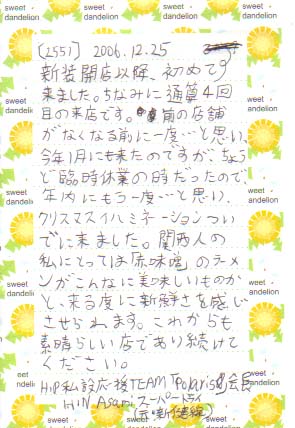 sweet dandelion
[2551] 2006.12.25
新装開店以降、初めて
来ました。ちなみに通算4回
目の来店です。前の店舗
がなくなる前に一度…と思い、
今年1月にも来たのですが、ちょう
ど臨時休業の時だったので
年内にもう一度…と思い、
クリスマスイルミネーションつい
でに来ました。関西人の
私にとっては「原味魂」のラーメ
ンがこんなに美味しいものか
と、来る度に新鮮さを感じ
させられます。これからも
素晴らしい店であり続けて
ください。
H.P私設応援TEAM「Polaris」会長
HIN Asami スーパードライ